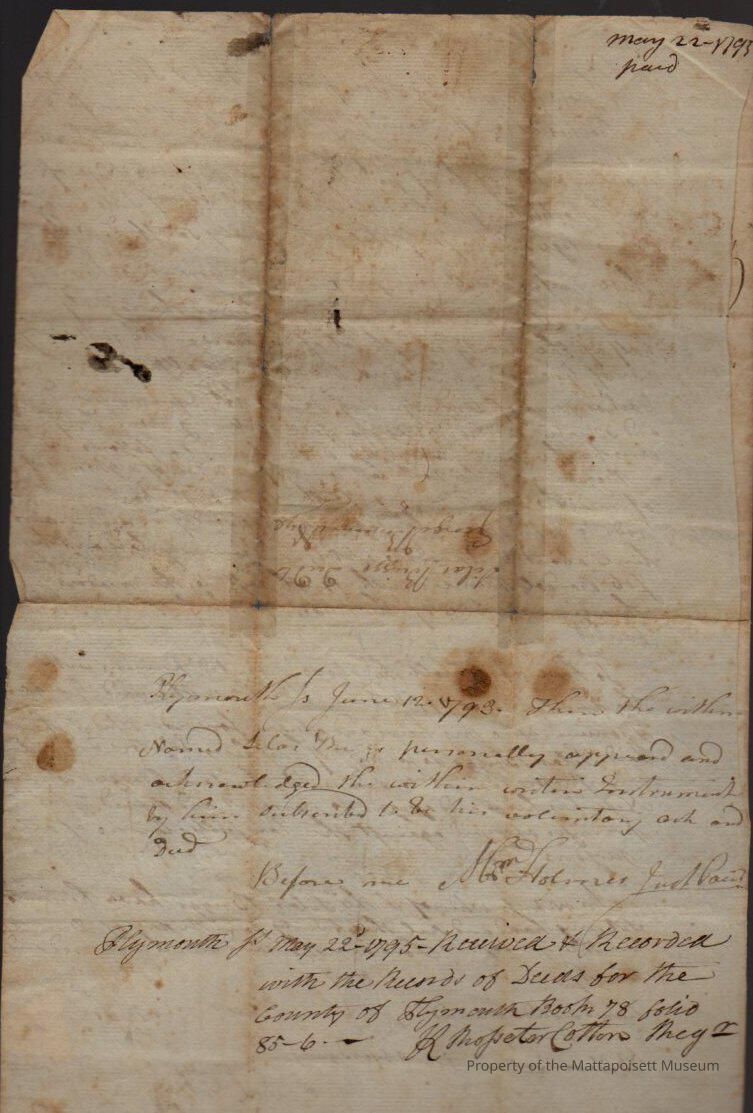 may 22-1795
paid
Silas Deed
George
Plymouth Ss June 12 1793. Then the within
Named Silas personally appeard and
acknowledged the within writen Instrument
by him subscribed to be his voluntary act and
Deed
Before me Abm Holmes Just Pacis
Plymouth Ss May 22d 1795 - Received & Recorded
with the Records of Deeds for the
County of Plymouth Book 78 folio
85-6. - Rosseter Cotton Regr
Property of the Mattapoisett Museum